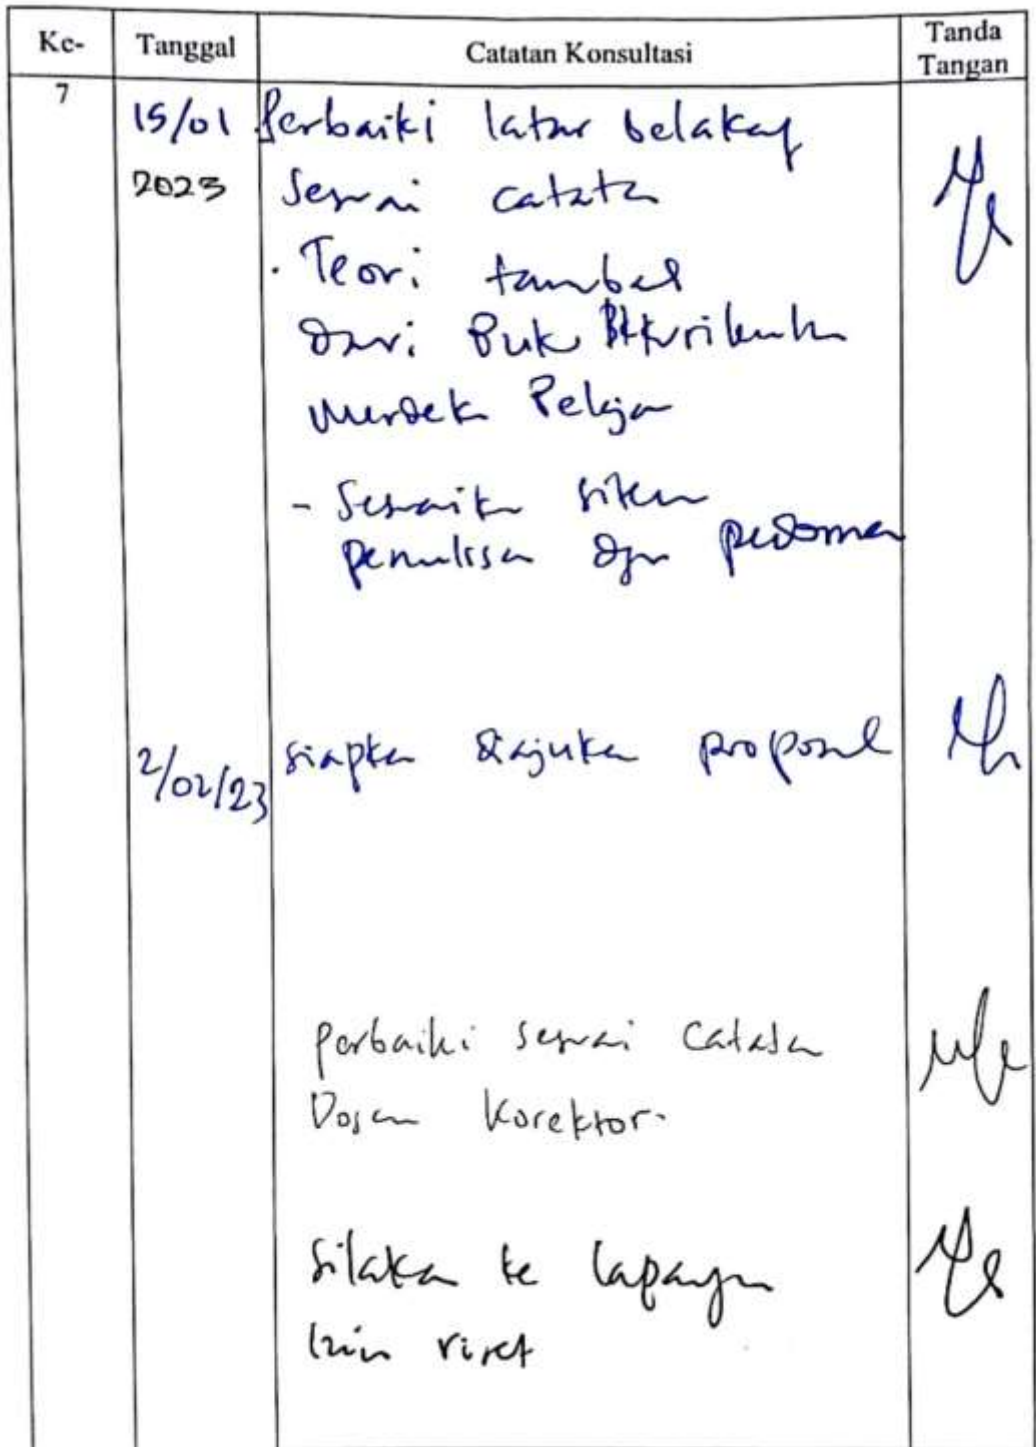 Ke- Tanggal Catatan Konsultasi Tanda Tangan
7 15/01 Perbaiki latar belakang
2023 Sesuai catatan
. Teori tambah
dari Buku Kurikulum
Merdeka Belajar
- Sesuaikan sitem
penulisan dgn pedoman
2/02/23 siapkan diajukan proposal
perbaiki sesuai catatan
Dosen Korektor.
Silakan ke lapangan
Izin riset